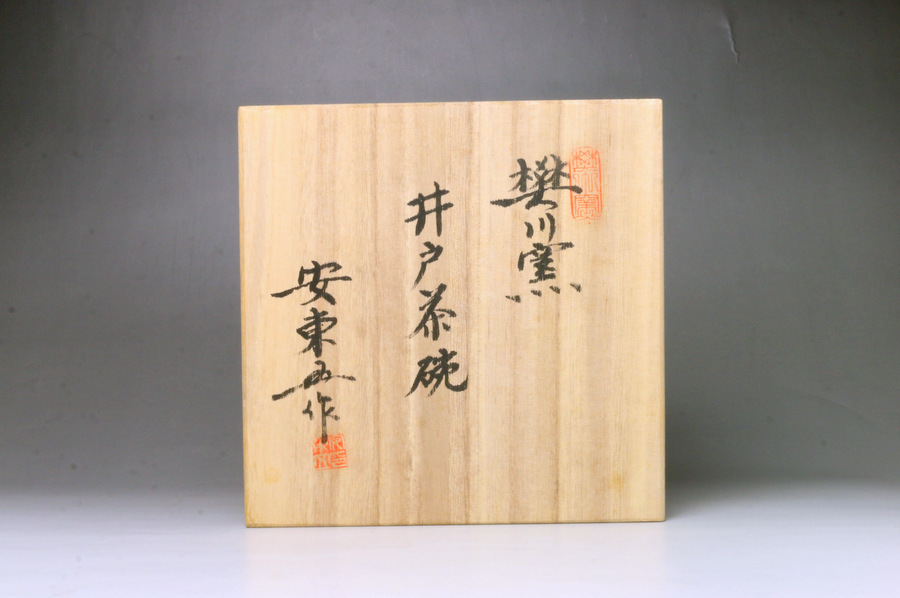 樊川窯
井戸茶碗
安東五作